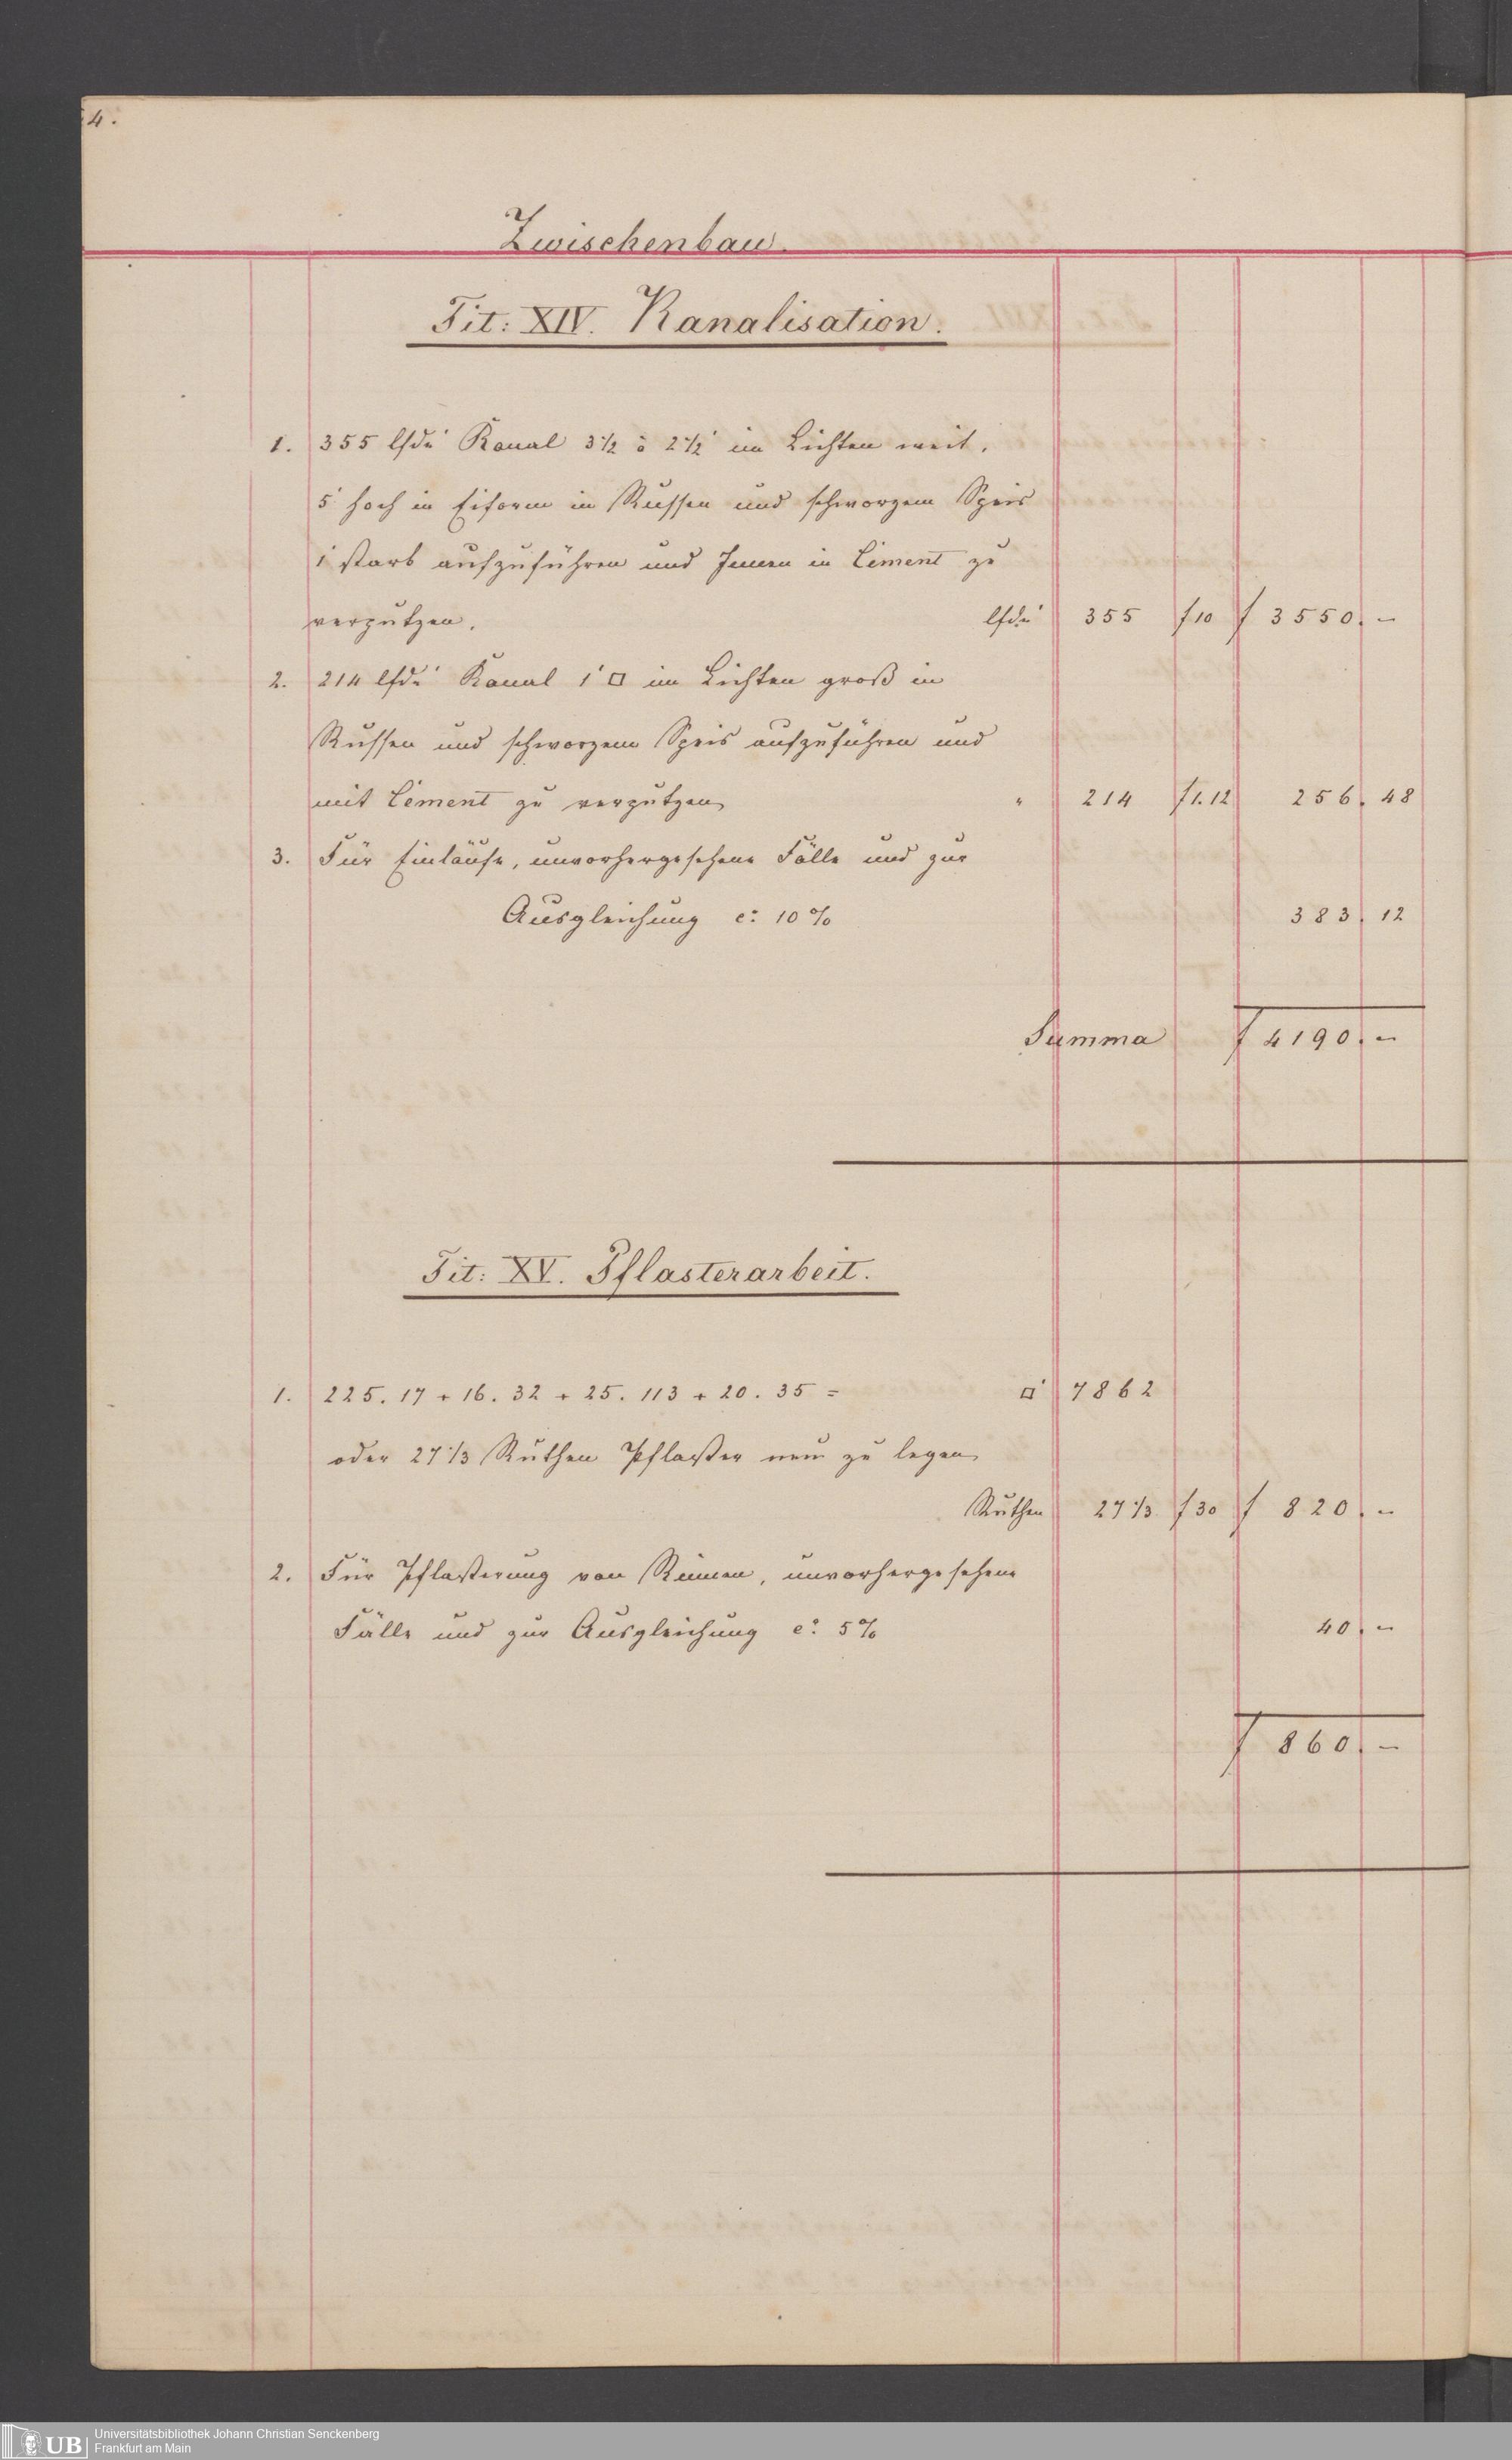 4.
Zwischenbau.
Tit: XIV. Kanalisation.
1. 355 lfde' Kanal 3 1/2 à 2 1/2' im Lichten weit,
5' hoch in Eiform in Russen und schwarzem Speis
1' stark aufzuführen und Innen in Ciment zu
verputzen. lfde' 355 f 10 f 3550. –
2. 214 lfde' Kanal 1' □ im Lichten groß in
Russen und schwarzem Speis aufzuführen und
mit Cement zu verputzen " 214 f 1.12 256. 48
3. Für Einläufe, unvorhergesehene Fälle und zur
Ausgleichung ca: 10% 383. 12
Summa f 4190. –
Tit: XV. Pflasterarbeit.
1. 225. 17 + 16. 32 + 25. 113 + 20. 35 = □' 7862
oder 27 1/3 Ruthen Pflaster neu zu legen
Ruthen 27 1/3 f 30 f 820. –
2. Für Pflasterung von Rinnen, unvorhergesehene
Fälle und zur Ausgleichung ca: 5% 40. –
f 860. –
UB Universitätsbibliothek Johann Christian Senckenberg
Frankfurt am Main